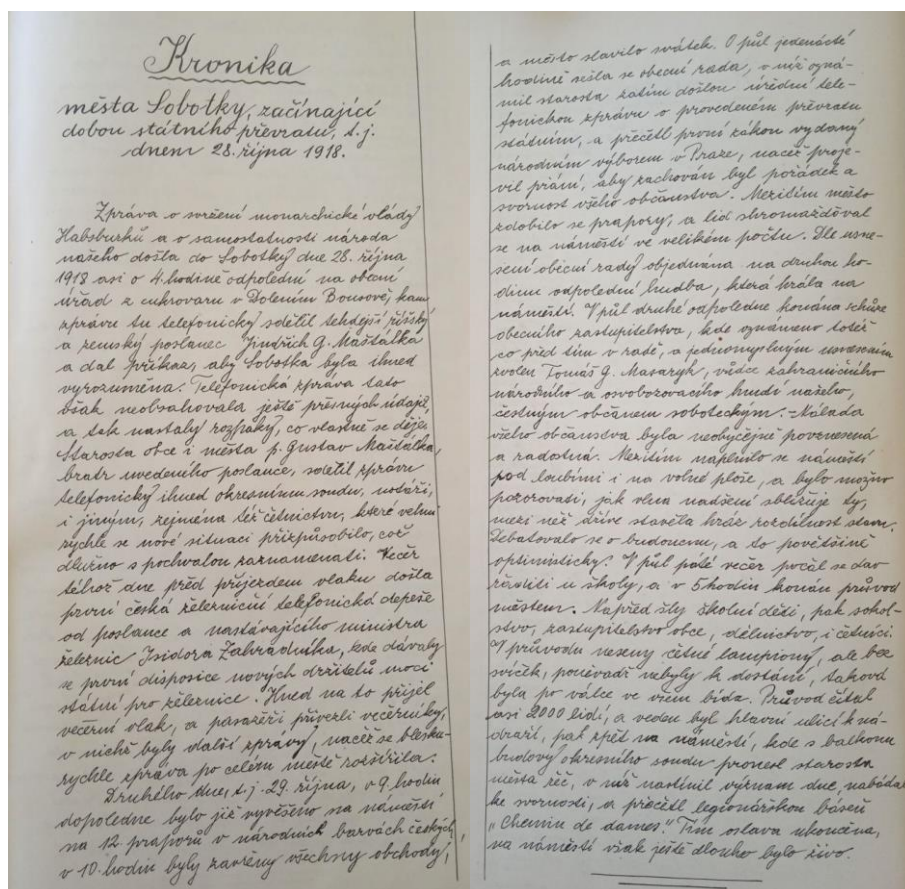 Kronika
města Sobotky, začínající
dobou státního převratu, t. j.
dnem 28. října 1918.
Zpráva o svržení monarchické vlády
Habsburků a o samostatnosti národa
našeho došla do Sobotky dne 28. října
1918 asi o 4. hodině odpolední na obecní
úřad z cukrovaru v Dolením Bousově, kam
zprávu tu telefonicky sdělil tehdejší říšský
a zemský poslanec Jindřich G. Maštálka
a dal příkaz, aby Sobotka byla ihned
vyrozuměna. Telefonická zpráva tato
však neobsahovala ještě přesných údajů,
a tak nastaly rozpaky, co vlastně se děje.
Starosta obce i města p. Gustav Maštálka,
bratr uvedeného poslance, sdělil zprávu
telefonicky ihned okresnímu soudu, notáři,
i jiným, zejména též četnictvu, které velmi
rychle se nové situaci přizpůsobilo, což
dlužno s pochvalou zaznamenati. Večer
téhož dne před příjezdem vlaku došla
první česká železniční telefonická depeše
od poslance a nastávajícího ministra
železnic Isidora Zahradníka, kde dávaly
se první disposice nových držitelů moci
státní pro železnice. Hned na to přijel
večerní vlak, a pasažéři přivezli večerníky,
v nichž byly další zprávy, načež se blesku-
rychle zpráva po celém městě rozšířila.
Druhého dne, t. j. 29. října, v 9. hodin
dopoledne bylo již vyvěšeno na náměstí
na 12. praporů v národních barvách českých,
v 10. hodin byly zavřeny všechny obchody,
a město slavilo svátek. O půl jedenácté
hodině sešla se obecní rada, v níž ozná-
mil starosta zatím došlou úřední tele-
fonickou zprávu o provedeném převratu
státním, a přečetl první zákon vydaný
národním výborem v Praze, načež proje-
vil přání, aby zachován byl pořádek a
svornost všeho občanstva. Mezitím město
zdobilo se prapory, a lid shromažďoval
se na náměstí ve velikém počtu. Dle usne-
sení obecní rady objednána na druhou ho-
dinu odpolední hudba, která hrála na
náměstí. V půl druhé odpoledne konána schůze
obecního zastupitelstva, kde oznámeno totéž
co před tím v radě, a jednomyslným usnesením
zvolen Tomáš G. Masaryk, vůdce zahraničního
národního a osvobozovacího hnutí našeho,
čestným občanem soboteckým. – Nálada
všeho občanstva byla neobyčejně povznesená
a radostná. Mezitím naplnilo se náměstí
pod loubími i na volné ploše, a bylo možno
pozorovati, jak vlna nadšení sbližuje ty,
mezi něž dříve stavěla hráz rozdílnost stavu.
Debatovalo se o budoucnu, a to povětšině
optimisticky. V půl páté večer počal se dav
řaditi u školy, a v 5 hodin konán průvod
městem. Napřed šly školní děti, pak sokol-
stvo, zastupitelstvo obce, dělnictvo, i četníci.
V průvodu neseny četné lampiony, ale bez
svíček, poněvadž nebyly k dostání, taková
byla po válce ve všem bída. Průvod čítal
asi 2000 lidí, a veden byl hlavní ulicí k ná-
draží, pak zpět na náměstí, kde s balkonu
budovy okresního soudu pronesl starosta
města řeč, v níž nastínil význam dne, nabádal
ke svornosti, a přečetl legionářskou báseň
"Chemin de dames." Tím oslava ukončena,
na náměstí však ještě dlouho bylo živo.